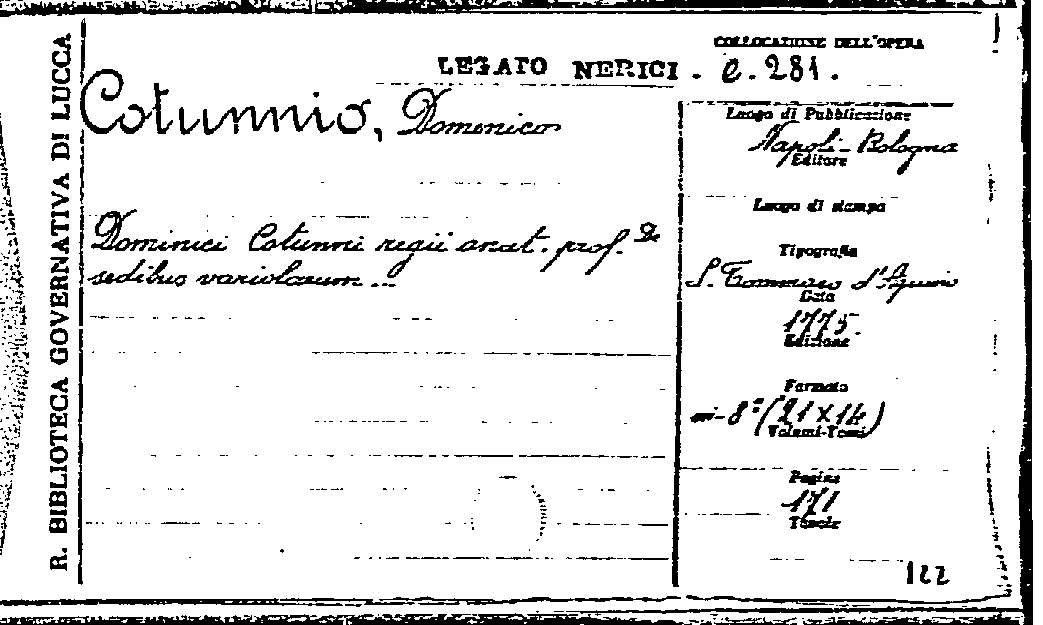 R. BIBLIOTECA GOVERNATIVA DI LUCCA
COLLOCAZIONE DELL'OPERA
LEGATO NERICI. e. 281.
Cotunnio, Domenico
Dominici Cotunni regii anat. prof. De
sedibus variolarum ...
Luogo di Pubblicazione
Napoli-Bologna
Editore
Luogo di stampa
Tipografia
S. Tommaso d'Aquino
Data
1775.
Edizione
Formato
in-8º (21 x 14)
Volumi-Tomi
Pagine
171
Tavole
122